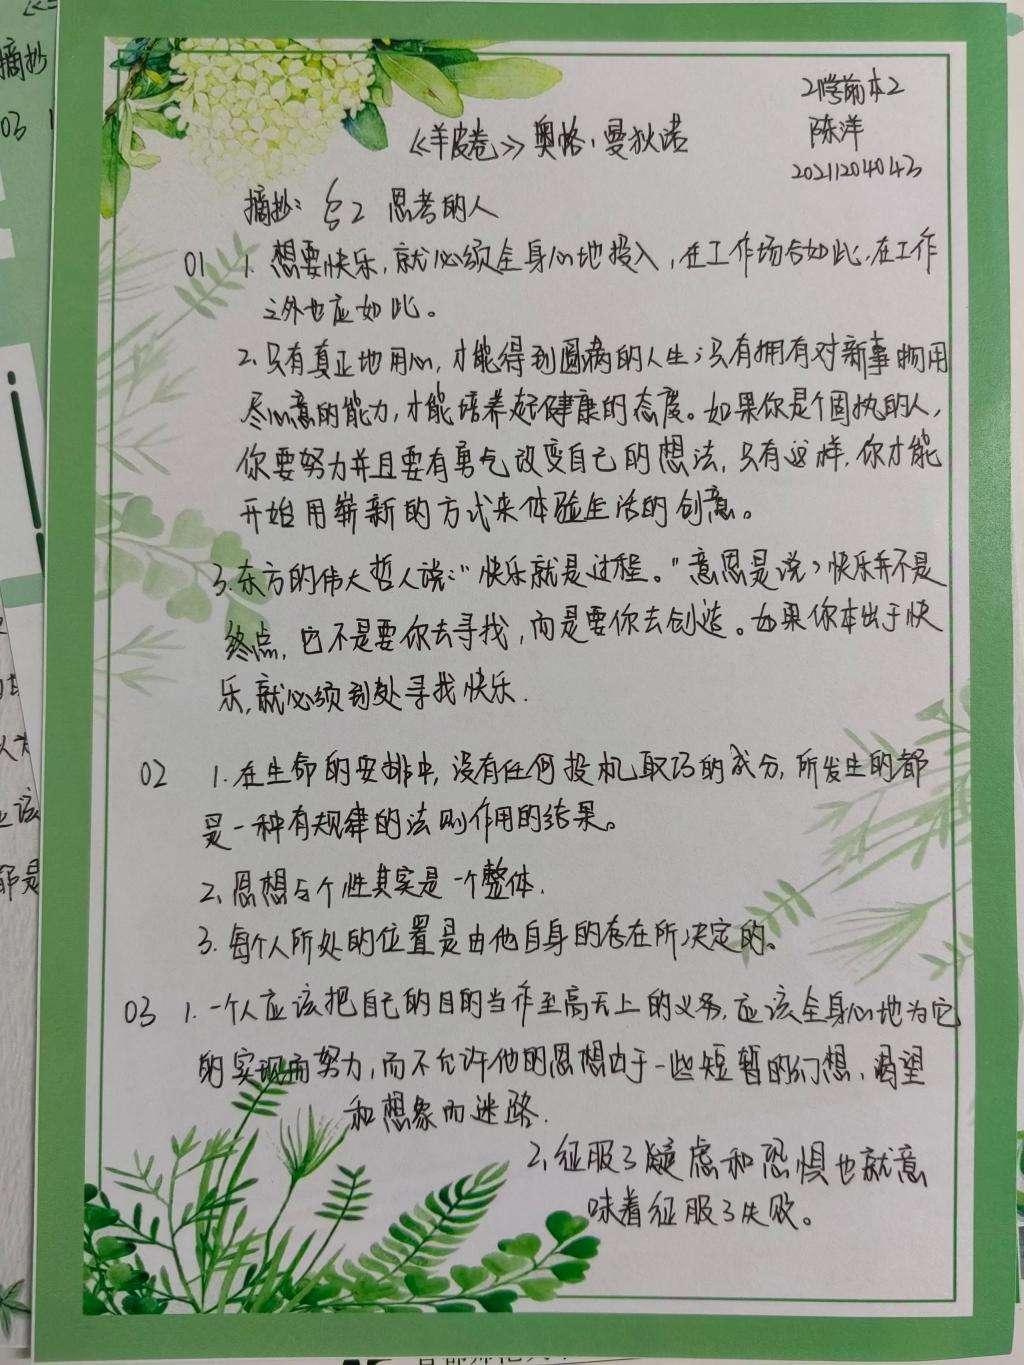 21学前本2
陈洋
20211204043
《羊皮卷》奥格·曼狄诺
摘抄: 2 思考的人
01 1. 想要快乐,就必须全身心地投入,在工作场合如此,在工作
之外也应如此。
2. 只有真正地用心,才能得到圆满的人生;只有拥有对新事物用
尽心意的能力,才能培养起健康的态度。如果你是个固执的人,
你要努力并且要有勇气改变自己的想法,只有这样,你才能
开始用崭新的方式来体验生活的创意。
3. 东方的伟大哲人说:“快乐就是过程。”意思是说,快乐并不是
终点,它不是要你去寻找,而是要你去创造。如果你本出于快
乐,就必须到处寻找快乐.
02 1. 在生命的安排中,没有任何投机取巧的成分,所发生的都
是一种有规律的法则作用的结果。
2. 思想与个性其实是一个整体.
3. 每个人所处的位置是由他自身的存在所决定的。
03 1. 一个人应该把自己的目的当作至高无上的义务,应该全身心地为它
的实现而努力,而不允许他的思想由于一些短暂的幻想,渴望
和想象而迷路.
2. 征服了疑虑和恐惧也就意
味着征服了失败。
摘抄
03